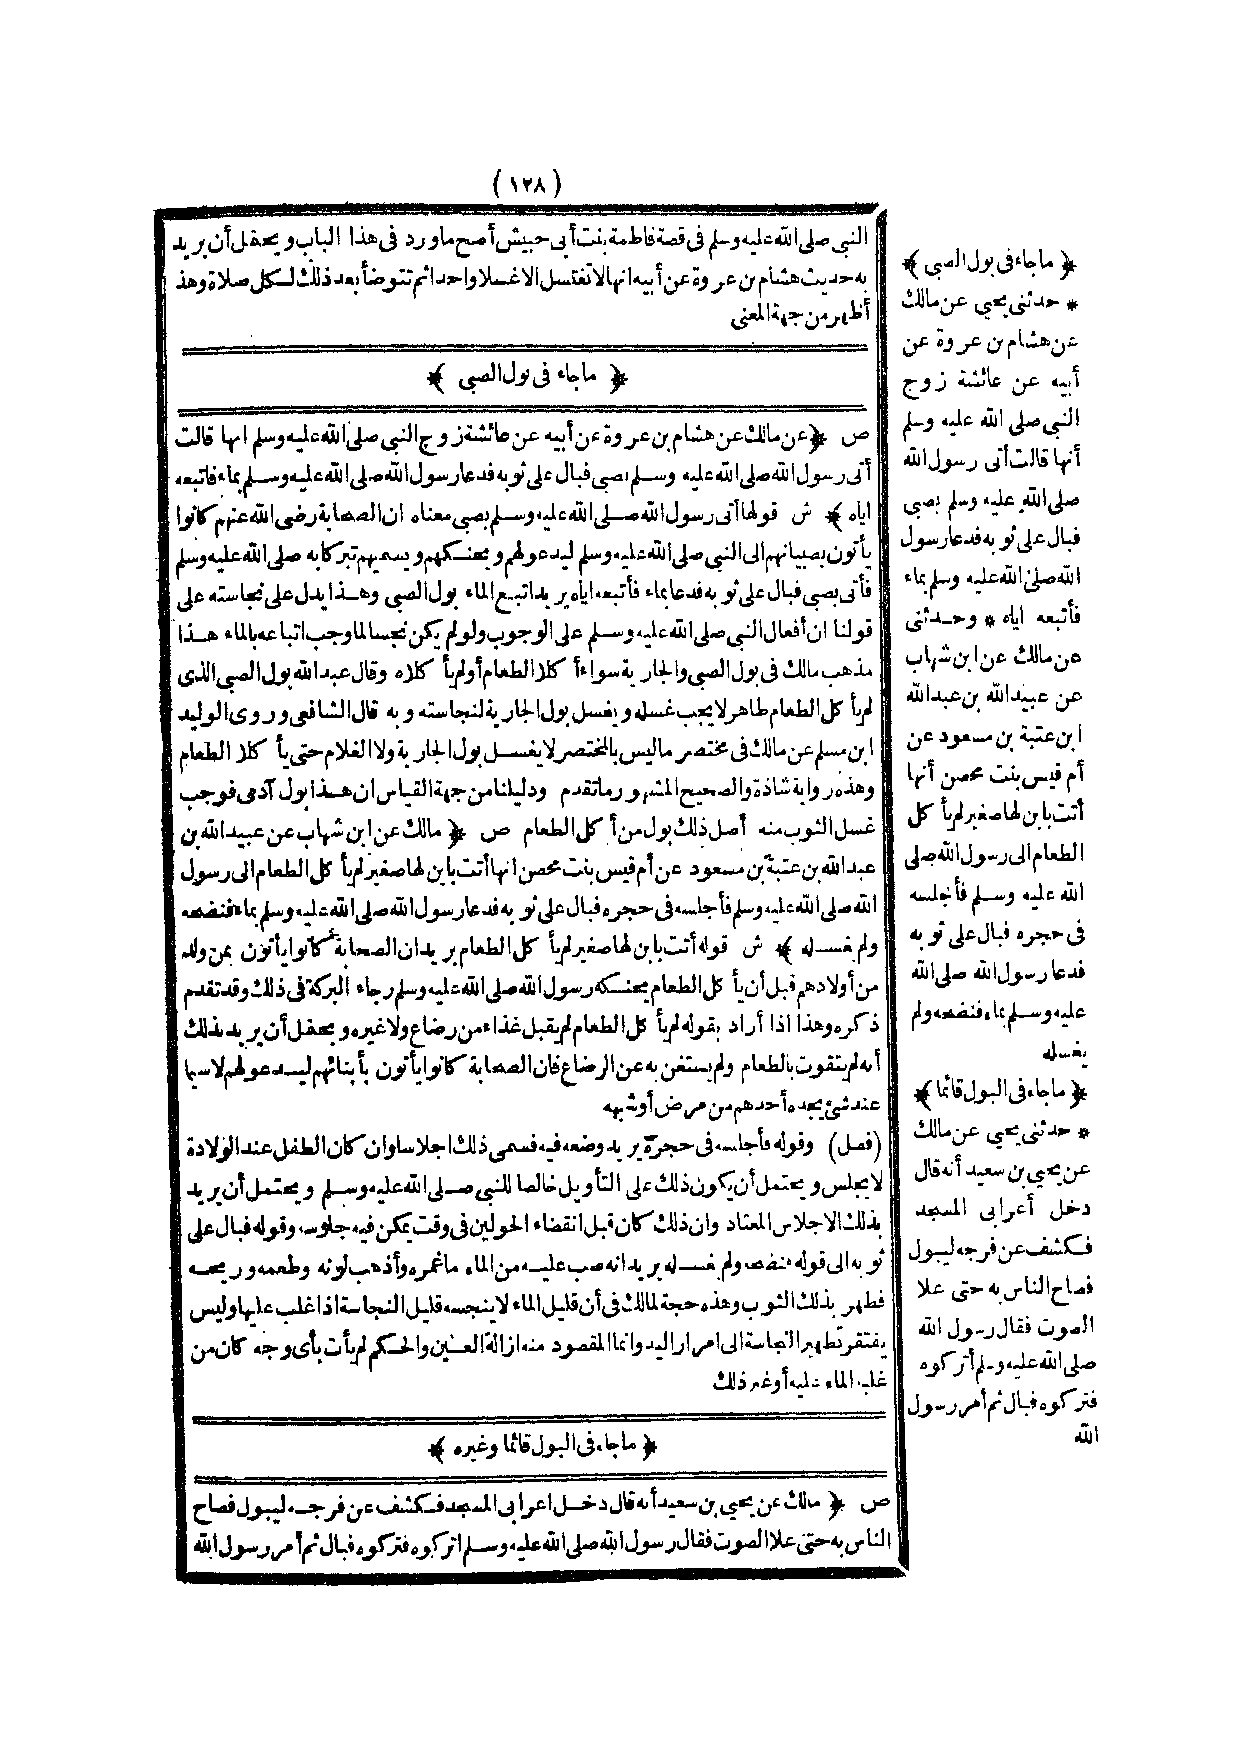 ( ١٢٨ )
النبي صلى الله عليه وسلم فى قصة فاطمة بنت أبى حبيش أصح ماورد فى هذا الباب ويحتمل أن يريد
به حديث هشام بن عروة عن أبيه انها لا تغتسل الاغسلا واحدا ثم تتوضأ بعد ذلك لكل صلاة وهذا
أظهر من جهة المعنى
﴿ ماجاء فى بول الصبى ﴾
ص ﴿ عن مالك عن هشام بن عروة عن أبيه عن عائشة زوج النبي صلى الله عليه وسلم انها قالت
أتى رسول الله صلى الله عليه وسلم بصبى فبال على ثوبه فدعا رسول الله صلى الله عليه وسلم بماء فاتبعه
اياه ﴾ ش قولها أتى رسول الله صلى الله عليه وسلم بصبى معناه ان الصحابة رضى الله عنهم كانوا
يأتون بصبيانهم الى النبي صلى الله عليه وسلم ليدعو لهم ويحنكهم ويسميهم تبركا به صلى الله عليه وسلم
فأتى بصبى فبال على ثوبه فدعا بماء فأتبعه اياه يريد اتبع الماء بول الصبى وهذا يدل على نجاسته على
قولنا ان أفعال النبي صلى الله عليه وسلم على الوجوب ولو لم يكن نجسا لما وجب اتباعه بالماء هذا
مذهب مالك فى بول الصبى والجارية سواء أكلا الطعام أولم يأكلاه وقال عبد الله بول الصبى الذى
لم يأكل الطعام طاهر لا يجب غسله ويغسل بول الجارية لنجاسته وبه قال الشافعى وروى الوليد
ابن مسلم عن مالك فى مختصر ماليس بالمختصر لا يغسل بول الجارية ولا الغلام حتى يأكلا الطعام
وهذه رواية شاذة والصحيح المشهور ماتقدم ودليلنا من جهة القياس ان هذا بول آدمى فوجب
غسل الثوب منه أصل ذلك بول من أكل الطعام ص ﴿ مالك عن ابن شهاب عن عبيد الله بن
عبد الله بن عتبة بن مسعود عن أم قيس بنت محصن انها أتت بابن لها صغير لم يأكل الطعام الى رسول
الله صلى الله عليه وسلم فأجلسه فى حجره فبال على ثوبه فدعا رسول الله صلى الله عليه وسلم بماء فنضحه
ولم يغسله ﴾ ش قوله أتت بابن لها صغير لم يأكل الطعام يريد ان الصحابة كانوا يأتون بمن ولد
من أولادهم قبل أن يأكل الطعام يحنكه رسول الله صلى الله عليه وسلم رجاء البركة فى ذلك وقد تقدم
ذكره وهذا اذا أراد بقوله لم يأكل الطعام لم يقبل غذاء من رضاع ولا غيره ويحتمل أن يريد بذلك
أنه لم يتقوت بالطعام ولم يستغن به عن الرضاع فان الصحابة كانوا يأتون بأبنائهم ليدعو لهم لاسيما
عند شئ يجده أحدهم من مرض أوشبهه
(فصل) وقوله فأجلسه فى حجره يريد وضعه فيه فسمى ذلك اجلاسا وان كان الطفل عند الولادة
لا يجلس ويحتمل أن يكون ذلك على التأويل خالصا للنبي صلى الله عليه وسلم ويحتمل أن يريد
بذلك الاجلاس المعتاد وان ذلك كان قبل انقضاء الحولين فى وقت يمكن فيه جلوسه وقوله فبال على
ثوبه الى قوله فنضحه ولم يغسله يريد انه صب عليه من الماء ماغمره وأذهب لونه وطعمه وريحه
فطهر بذلك الثوب وهذه حجة لمالك فى أن قليل الماء لا ينجسه قليل النجاسة اذا غلب عليها وليس
يفتقر تطهير النجاسة الى امرار اليد وانما المقصود منه ازالة العين والحكم لم يأت بأى وجه كان من
غلبة الماء عليه أوغير ذلك
﴿ ماجاء فى البول قائما وغيره ﴾
ص ﴿ مالك عن يحيى بن سعيد أنه قال دخل اعرابى المسجد فكشف عن فرجه ليبول فصاح
الناس به حتى علا الصوت فقال رسول الله صلى الله عليه وسلم اتركوه فتركوه فبال ثم أمر رسول الله
﴿ ماجاء فى بول الصبى ﴾
* حدثنى يحيى عن مالك
عن هشام بن عروة عن
أبيه عن عائشة زوج
النبي صلى الله عليه وسلم
أنها قالت أتى رسول الله
صلى الله عليه وسلم بصبى
فبال على ثوبه فدعا رسول
الله صلى الله عليه وسلم بماء
فأتبعه اياه * وحدثنى
عن مالك عن ابن شهاب
عن عبيد الله بن عبد الله
ابن عتبة بن مسعود عن
أم قيس بنت محصن أنها
أتت بابن لها صغير لم يأكل
الطعام الى رسول الله صلى
الله عليه وسلم فأجلسه
فى حجره فبال على ثوبه
فدعا رسول الله صلى الله
عليه وسلم بماء فنضحه ولم
يغسله
﴿ ماجاء فى البول قائما ﴾
* حدثنى يحيى عن مالك
عن يحيى بن سعيد أنه قال
دخل أعرابى المسجد
فكشف عن فرجه ليبول
فصاح الناس به حتى علا
الصوت فقال رسول الله
صلى الله عليه وسلم أتركوه
فتركوه فبال ثم أمر رسول
الله